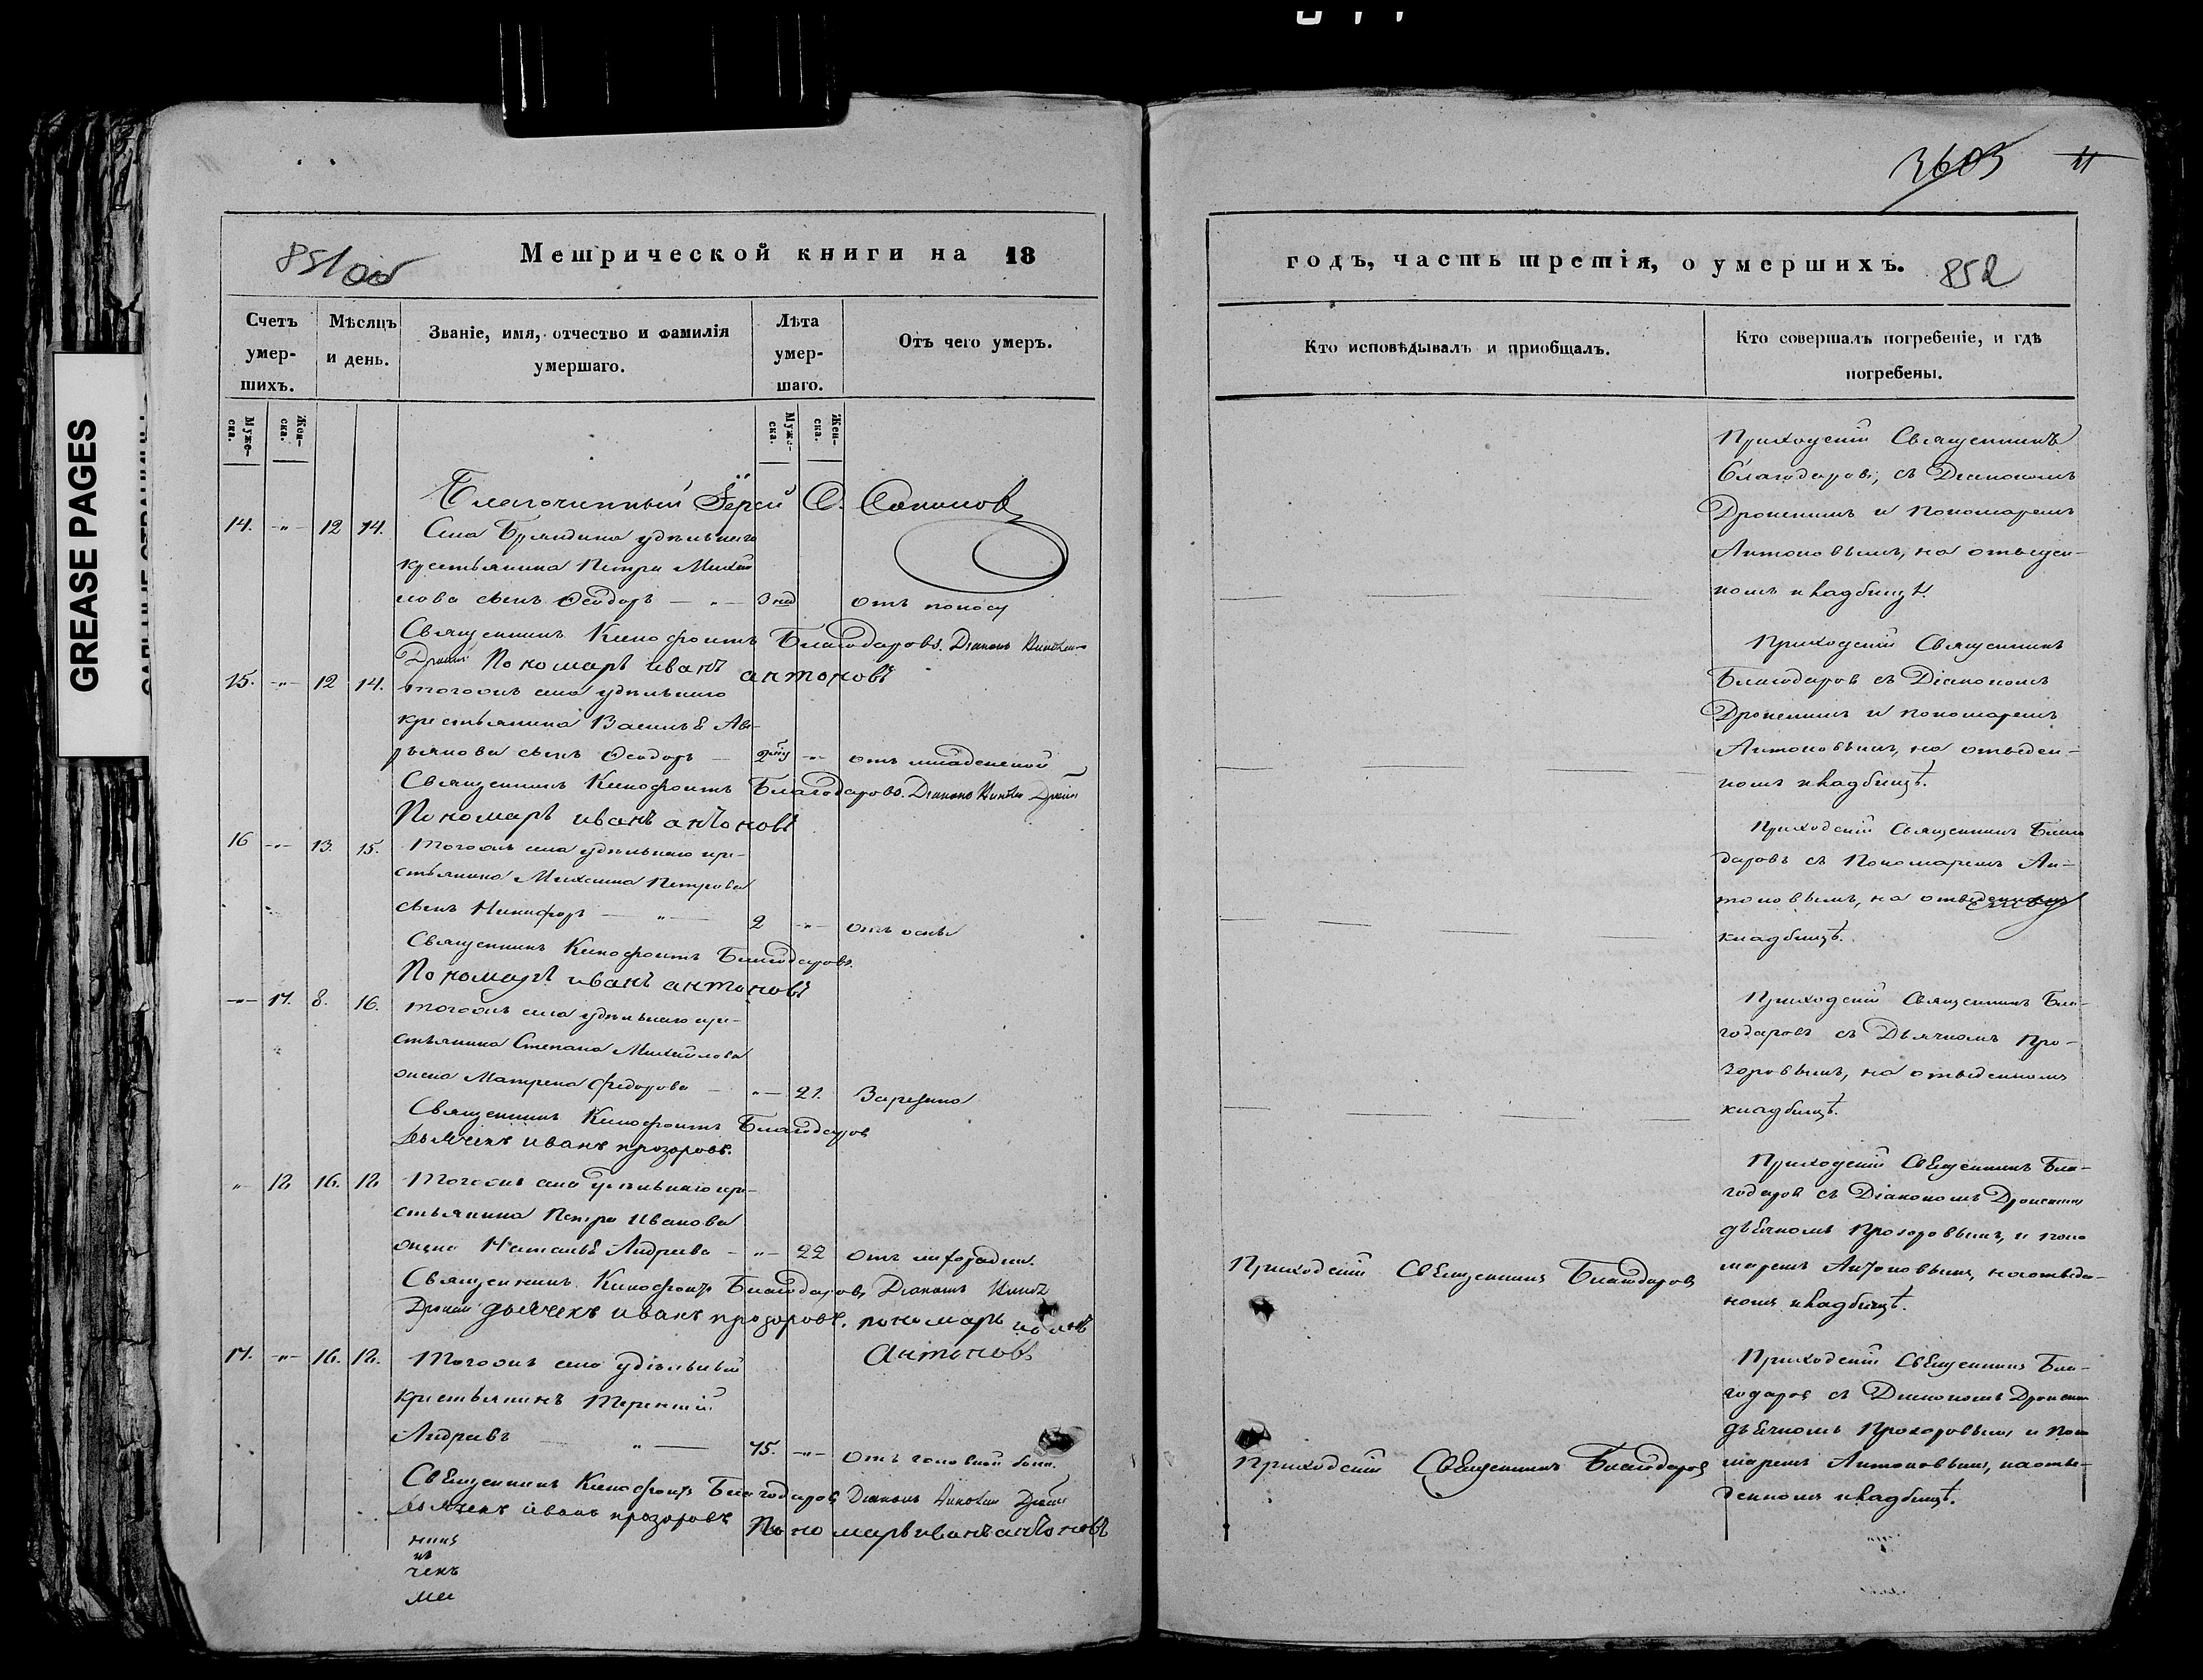 3603 11
GREASE PAGES
851 об
Метрической книги на 18
годъ, часть третія, о умершихъ.
852
Счетъ умер-шихъ.
Мѣсяцъ и день.
Званіе, имя, отчество и фамилія умершаго.
Лѣта умер-шаго.
Отъ чего умеръ.
Кто исповѣдывалъ и пріобщалъ.
Кто совершалъ погребеніе, и гдѣ погребены.
Муже-ска.
Жен-ска.
Муже-ска.
Жен-ска.
Благочинный Іерей
14. -"- 12 14. Села Бряндина удѣльнаго
крестьянина Петра Михай
лова сынъ Ѳеодоръ — " — 3 нед отъ поносу
Священникъ Ксенофонтъ Благодаровъ. Діаконъ
Пономарь иванъ антоновъ
Приходскій Священникъ
Благодаровъ, съ Діакономъ
и Пономаремъ
Антоновымъ, на отведен-
номъ кладбищѣ.
15. -"- 12 14. тогожъ села удѣльнаго
крестьянина Василья Аве-
рьянова сынъ Ѳеодоръ — -"- отъ младенской
Священникъ Ксенофонтъ Благодаровъ. Діаконъ
Пономарь иванъ антоновъ
Приходскій Священникъ
Благодаровъ съ Діакономъ
и пономаремъ
Антоновымъ, на отведен-
номъ кладбищѣ.
16 -"- 13. 15. Тогожъ села удѣльнаго кре-
стьянина Михаила Петрова
сынъ Никифоръ — " — 2 -"- отъ оспы
Священникъ Ксенофонтъ Благодаровъ.
Пономарь иванъ антоновъ
Приходскій Священникъ Благо
даровъ съ Пономаремъ Ан-
тоновымъ, на отведенномъ
кладбищѣ.
-"- 11. 8. 16. тогожъ села удѣльнаго кре-
стьянина Степана Михайлова
жена Матрена Федорова — -"- 21. Зарезана
Священникъ Ксенофонтъ Благодаровъ
Дьячекъ иванъ прозоровъ.
Приходскій Священникъ Бла-
годаровъ съ Дьячкомъ Про-
зоровымъ, на отведенномъ
кладбищѣ.
" 12. 16. 18. Тогожъ села удѣльнаго кре-
стьянина Петра Иванова
жена Наталья Андреева — -"- 22 отъ лихорадки.
Священникъ Ксенофонтъ Благодаровъ Діаконъ
дьячекъ иванъ прозоровъ. пономарь иванъ
антоновъ
Приходскій Священникъ Благодаровъ
Приходскій Священникъ Бла-
годаровъ съ Діакономъ
дьячкомъ Прозоровымъ, и поно
маремъ Антоновымъ, на отведен-
номъ кладбищѣ.
17. -"- 16. 18. Тогожъ села удѣльный
крестьянинъ Терентій
Андреевъ — " — 75. -"- отъ головной боли.
Священникъ Ксенофонтъ Благодаровъ Діаконъ
Дьячекъ иванъ прозоровъ Пономарь иванъ антоновъ
Приходскій Священникъ Благодаровъ
Приходскій Священникъ Бла-
годаровъ съ Діакономъ
дьячкомъ Прозоровымъ и Поно
маремъ Антоновымъ, на отве-
денномъ кладбищѣ.
никъ
нъ
чекъ